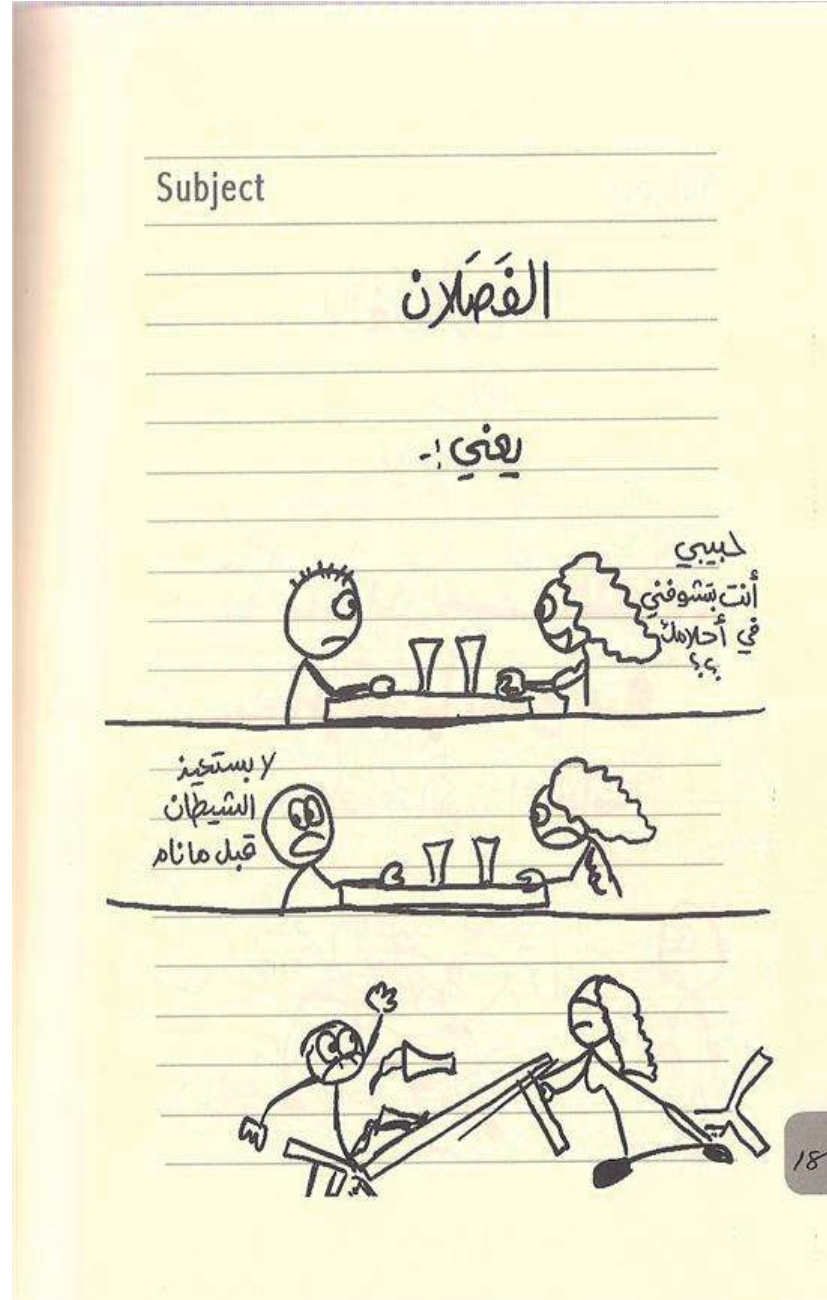 Subject
الفَصَلان
يعني :-
حبيبي
أنت بتشوفني
في أحلامك
؟؟
لا بستعيذ
الشيطان
قبل ما نام
18